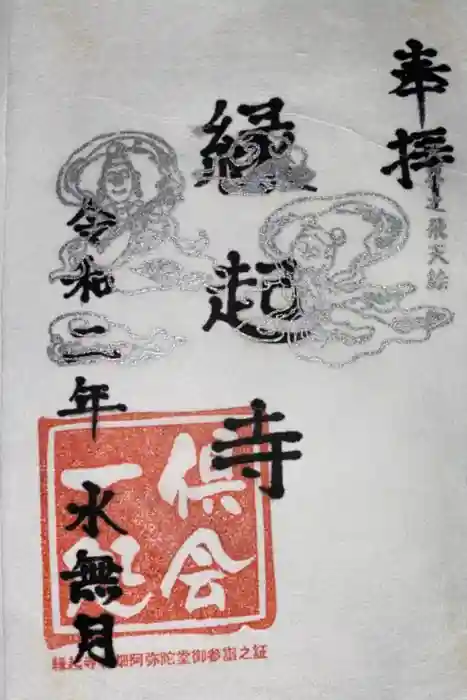 奉拝
飛天絵
縁起寺
令和二年
水無月
倶会一処
阿弥陀堂御参詣之証